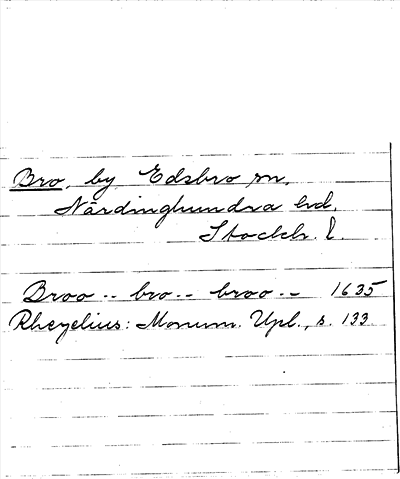 Bro, by, Edsbro sn,
Närdinghundra hd.
Stockh. l.
Broo -- bro -- broo -- 1635
Rhezelius: Monum. Upl., s. 133